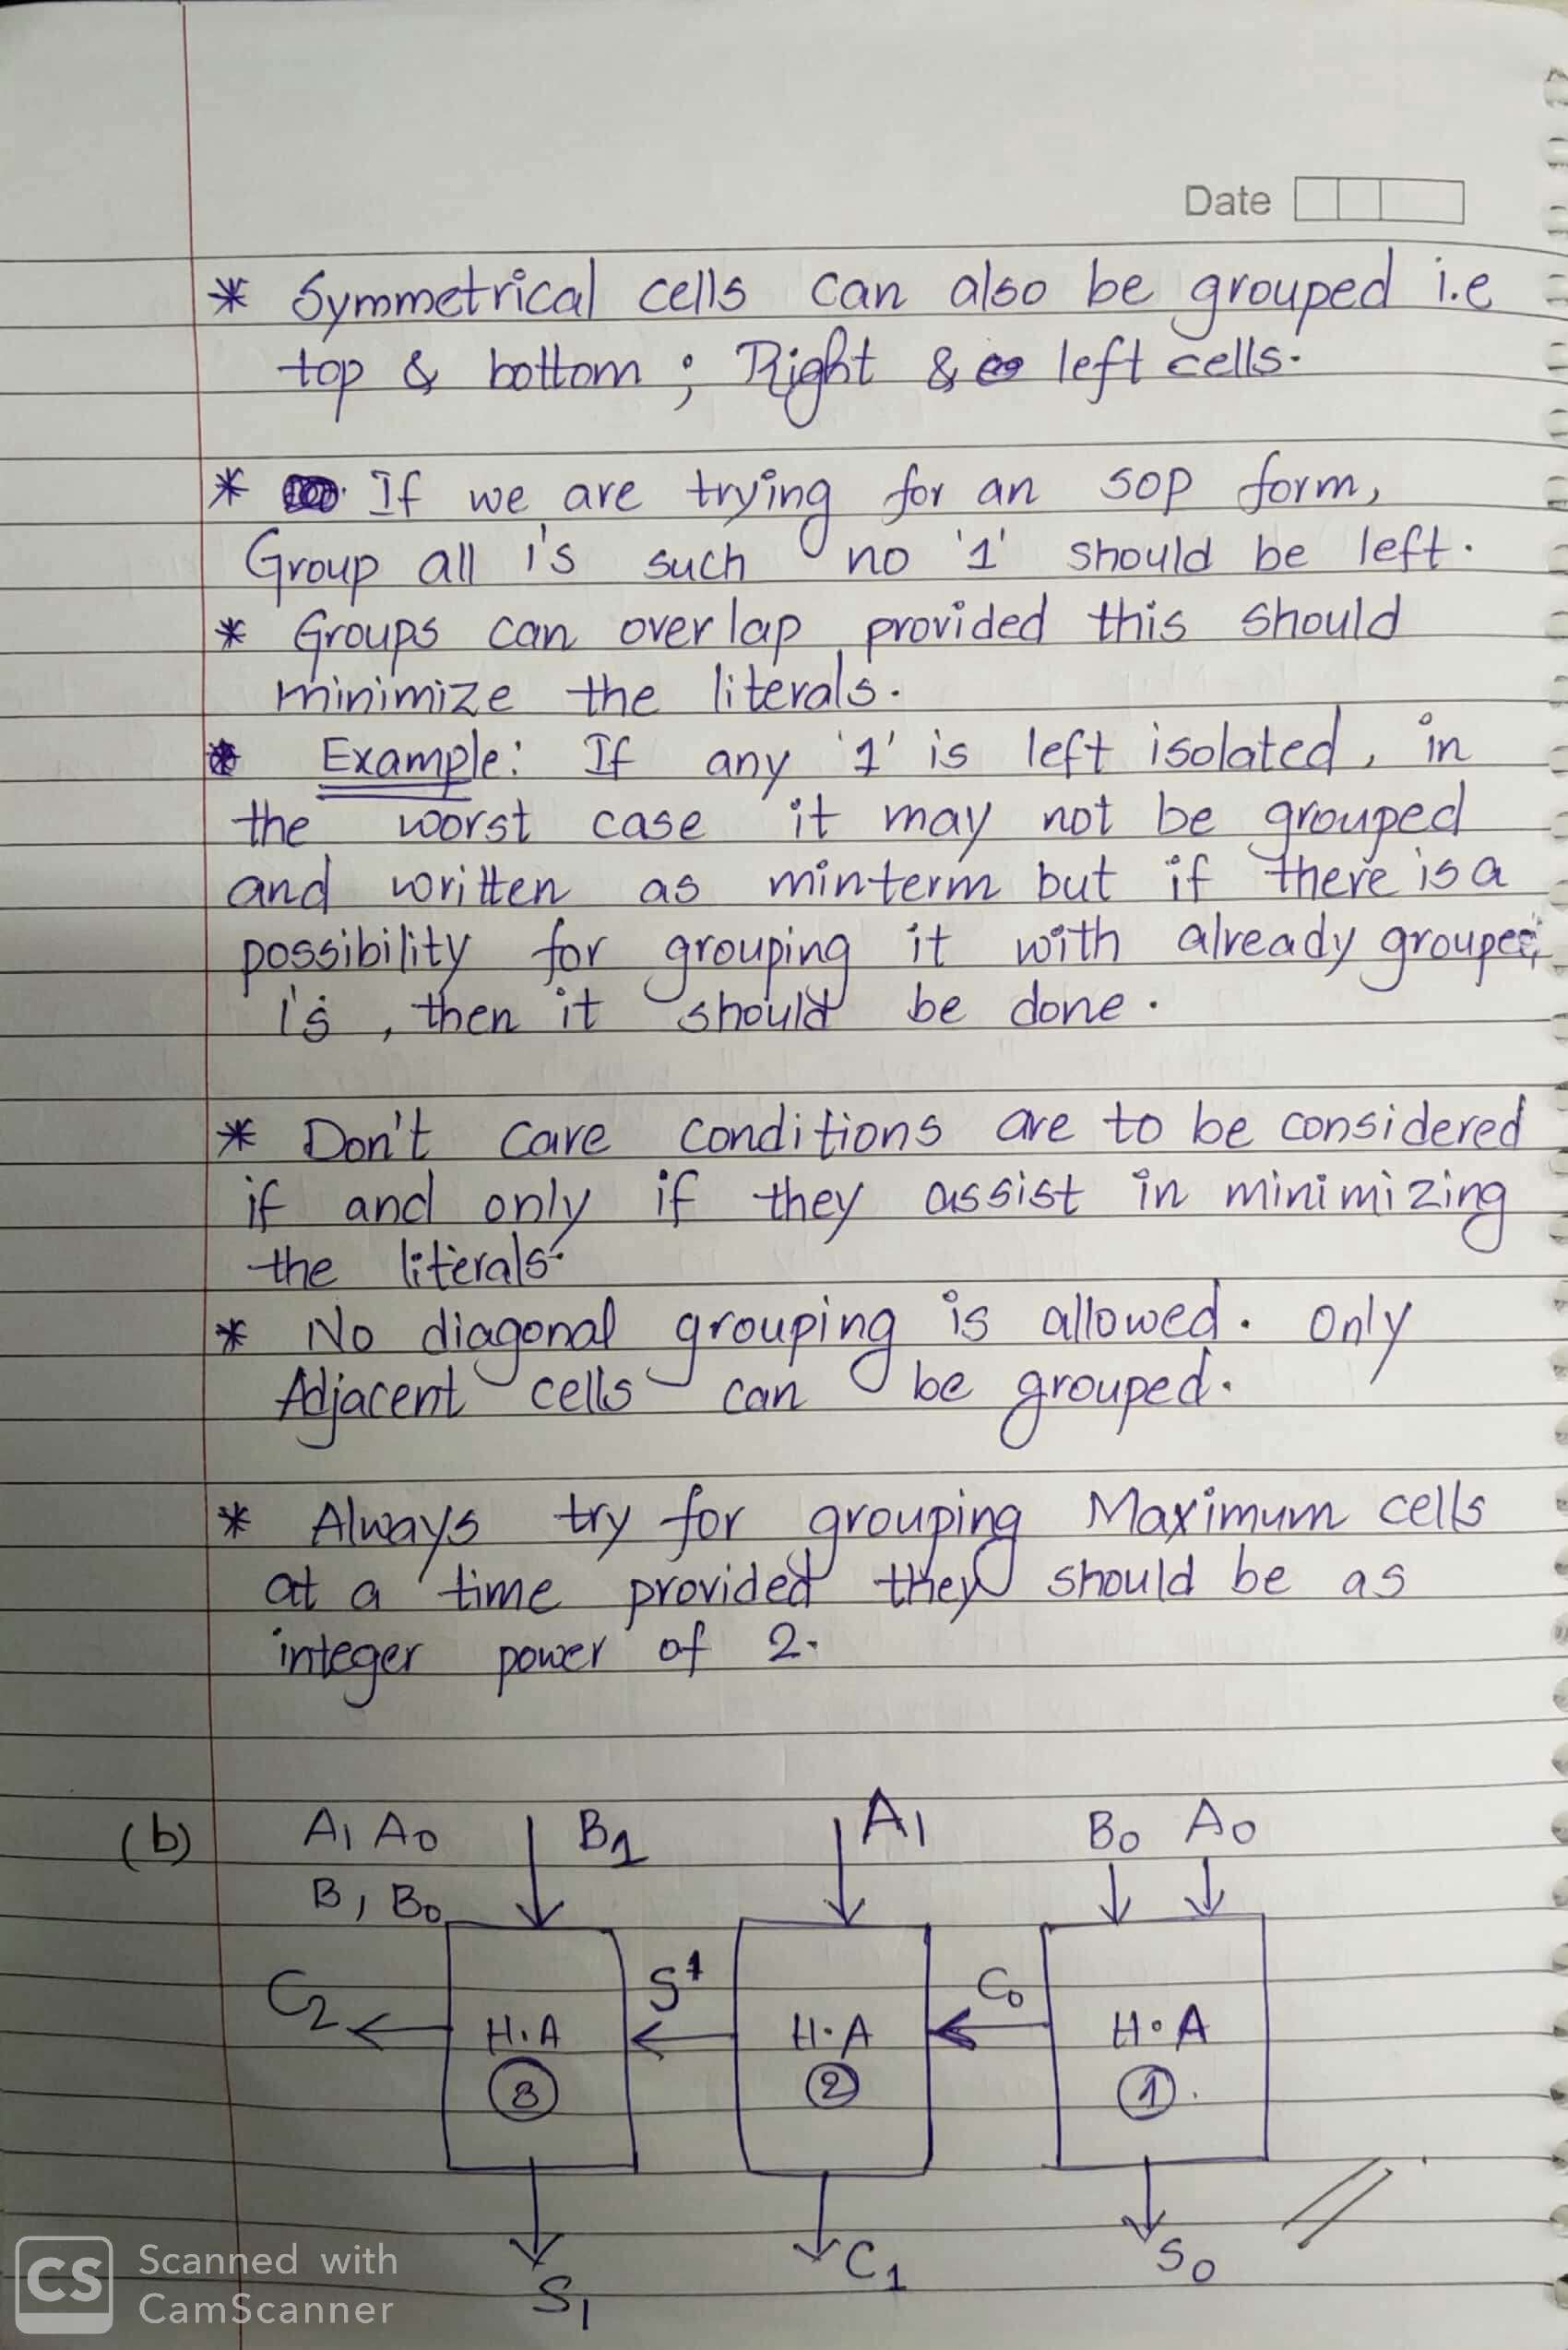 Date
* Symmetrical cells can also be grouped i.e
top & bottom ; Right & left cells.
* If we are trying for an SOP form,
Group all 1's such no '1' should be left.
* Groups can overlap provided this should
minimize the literals.
* Example: If any '1' is left isolated, in
the worst case it may not be grouped
and written as minterm but if there is a
possibility for grouping it with already grouped
1's, then it should be done.
* Don't care conditions are to be considered
if and only if they assist in minimizing
the literals.
* No diagonal grouping is allowed. Only
Adjacent cells can be grouped.
* Always try for grouping Maximum cells
at a time provided they should be as
integer power of 2.
(b) A1 A0 B1 A1 B0 A0
B1 B0
C2 S1 C0
H.A H.A H.A
3 2 1
S1 C1 S0
CS Scanned with
CamScanner